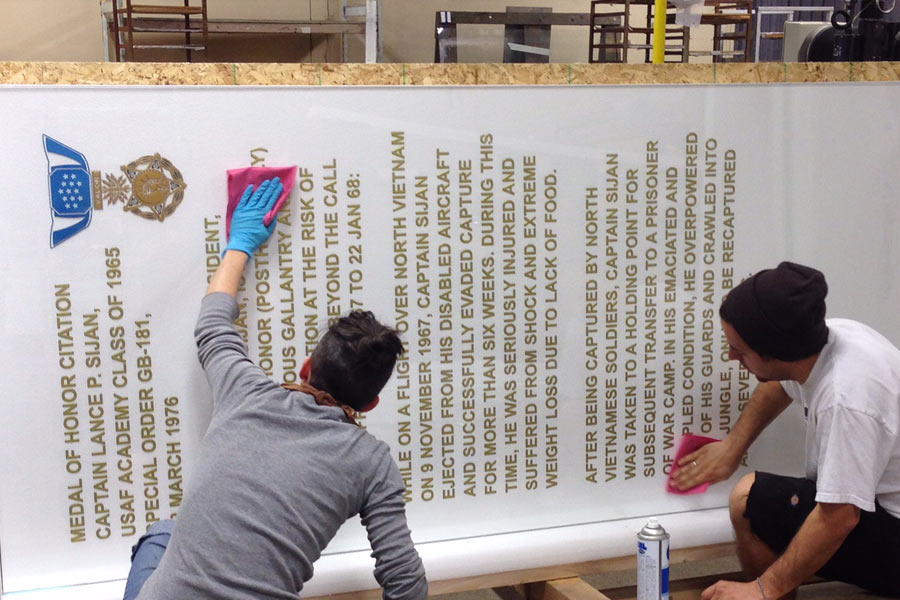 MEDAL OF HONOR CITATION
CAPTAIN LANCE P. SIJAN,
USAF ACADEMY CLASS OF 1965
SPECIAL ORDER GB-181,
MARCH 1976
ONOR (POSTH
OUS GALLANTRY AN
TION AT THE RISK OF
BEYOND THE CALL
7 TO 22 JAN 68:
WHILE ON A FLIGHT OVER NORTH VIETNAM
ON 9 NOVEMBER 1967, CAPTAIN SIJAN
EJECTED FROM HIS DISABLED AIRCRAFT
AND SUCCESSFULLY EVADED CAPTURE
FOR MORE THAN SIX WEEKS. DURING THIS
TIME, HE WAS SERIOUSLY INJURED AND
SUFFERED FROM SHOCK AND EXTREME
WEIGHT LOSS DUE TO LACK OF FOOD.
AFTER BEING CAPTURED BY NORTH
VIETNAMESE SOLDIERS, CAPTAIN SIJAN
WAS TAKEN TO A HOLDING POINT FOR
SUBSEQUENT TRANSFER TO A PRISONER
OF WAR CAMP. IN HIS EMACIATED AND
PLED CONDITION, HE OVERPOWERED
OF HIS GUARDS AND CRAWLED INTO
JUNGLE, BE RECAPTURED